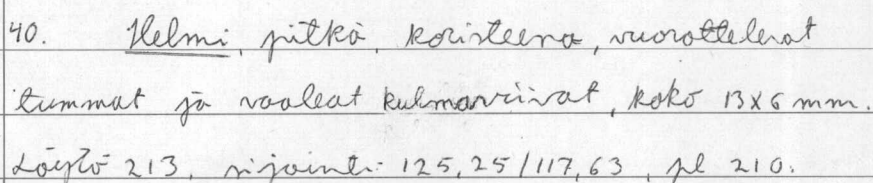 40. Helmi, pitkä, koristeena, vuorottelevat
tummat ja vaaleat kulmaviivat, koko 13x6 mm.
Löytö 213, sijainti: 125,25/117,63, pl 210.